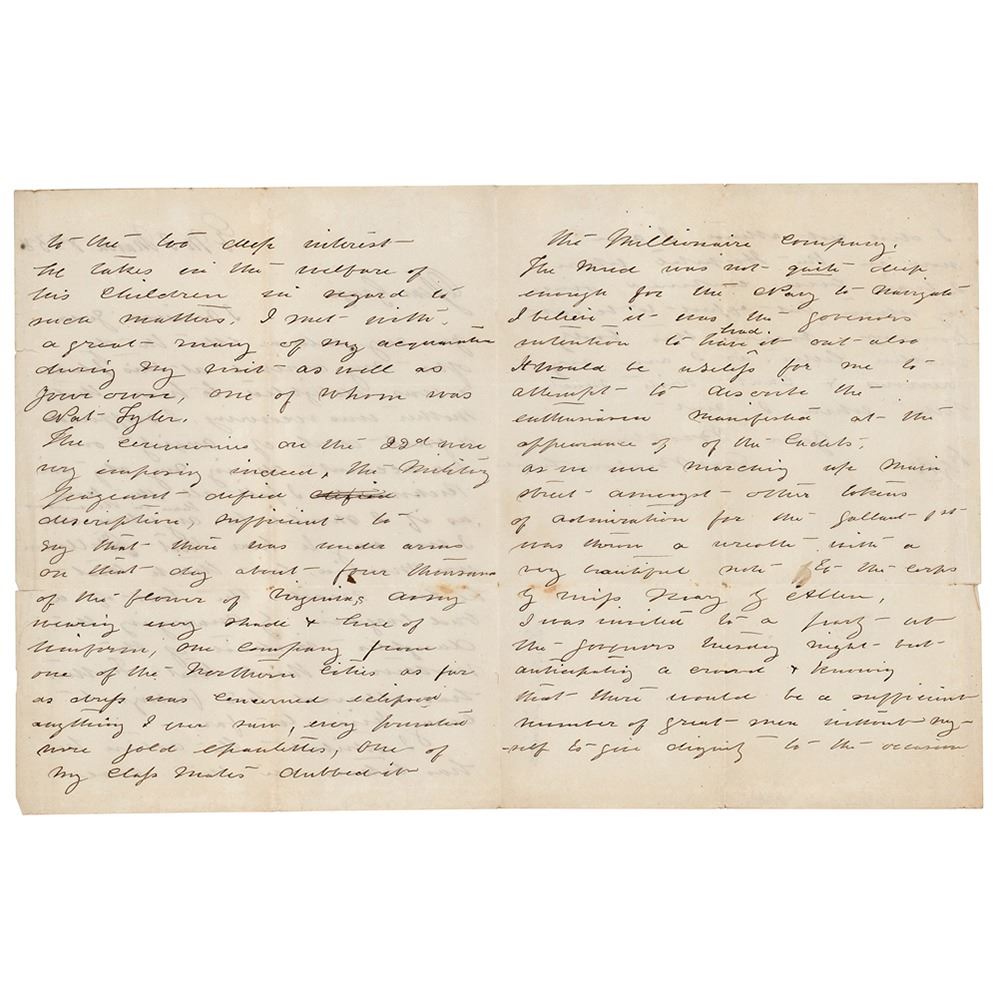 to the too deep interest
he takes in the welfare of
his children in regard to
such matters. I met with
a great many of my acquaintance
during my visit as well as
your own, one of whom was
Nat Tyler.
The ceremonies on the 22d were
very imposing indeed, the Military
Pageant defied
description, sufficient to
say that there was under arms
on that day about four thousand
of the flower of Virginias army
wearing every shade & hue of
Uniform, one company from
one of the Northern Cities as far
as dress was concerned eclipsed
anything I ever saw, every private
wore gold epauletts, one of
my class mates dubbed it
the Millionaire Company.
The mud was not quite deep
enough for the Navy to navigate
I believe it was the governors
intention to have had it out also
It would be useless for me to
attempt to discribe the
enthusiasm manifested at the
appearance of of the Cadets.
as we were marching up Main
street amongst other tokens
of admiration for the gallant 1st
was thrown a wreathe with a
very beautiful note to the corps
by miss Mary G Allen,
I was invited to a party at
the governors Tuesday night but
anticipating a crowd & knowing
that there would be a sufficient
number of great men without my-
-self to give dignity to the occasion